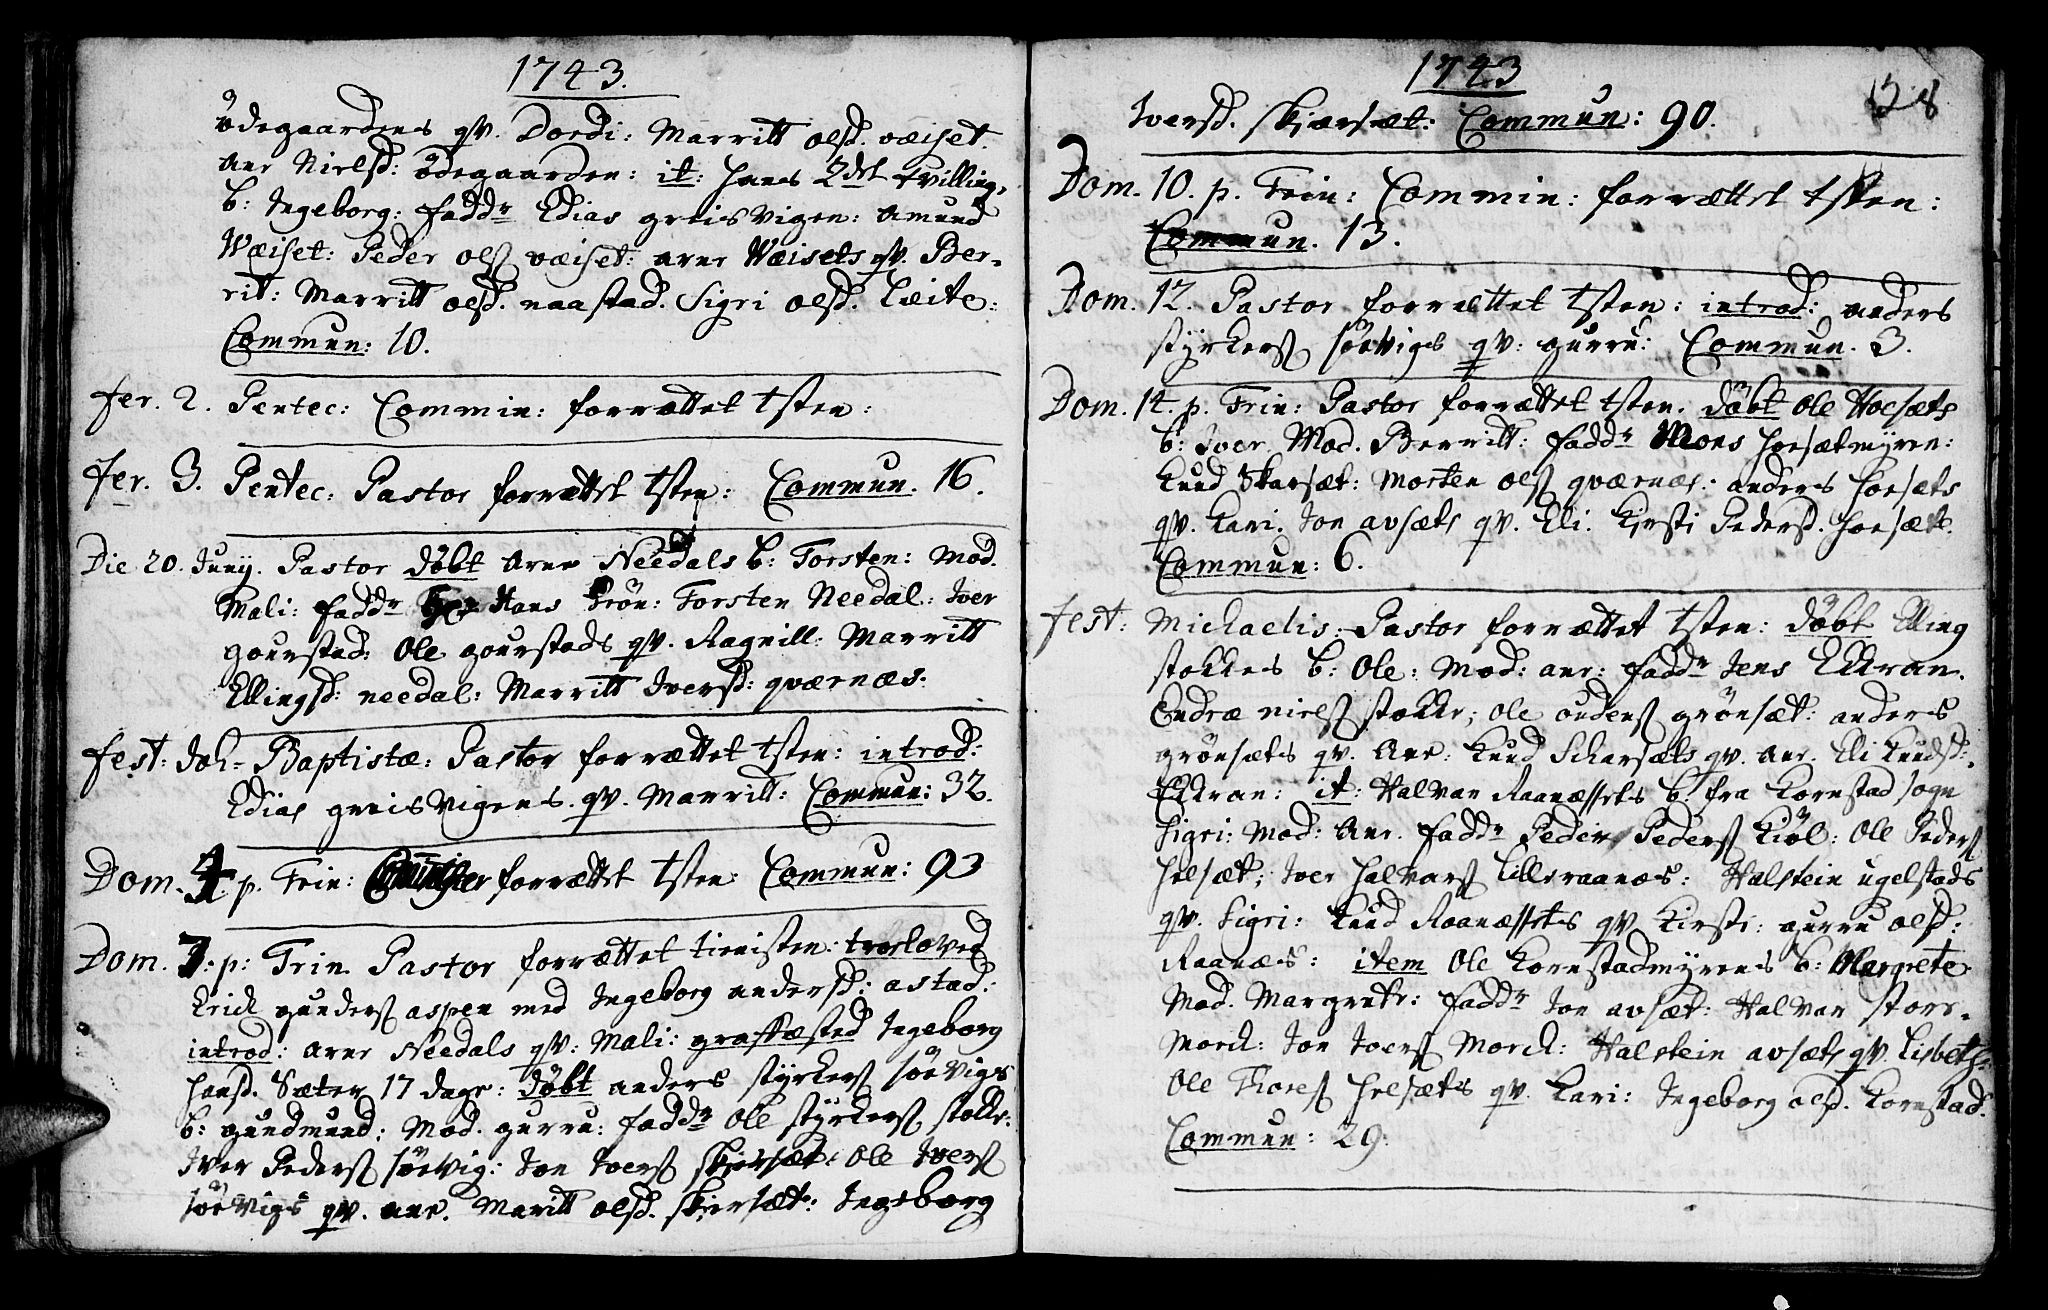 1743.
ödegaardens qv. Dordi: Marritt olsd. væiset.
Anr Nielsd: ödegaarden: it: hans 2det tvilling,
b: Ingeborg: Fadd: Edias greisvigen: Amund
Wæiset: Peder ols væiset: arne Wæisets qv. Ber-
rit: Marritt olsd. naastad. Sigri olsd. Læite:
Commun: 10.
fer. 2. Pentec: Commin: forrættet tsten:
fer. 3. Pentec: Pastor forrættet tsten: Commun. 16.
Die 20. Juny. Pastor döbt Arne Needals b: Torsten: Mod.
Mali: Fadd: Hans Trön: Torsten Needal: Iver
gourstad: Ole gourstads qv. Ragnill: Marritt
Ellingsd: needal: Marritt Iversd: qværnæs.
fest: Joh- Baptistæ: Pastor forrættet tsten: introd:
Edias greisvigens qv. Marritt: Commun: 32.
Dom. 4. p. Trin: forrættet tsten: Commun: 93
Dom. 7. p: Trin. Pastor forrættet tienisten: troeloved
Erich gunders aspen med Ingeborg andersd: astad:
introd: arne Needals qv: Mali: græffæsted Ingeborg
hansd. Sæter 17 dage: döbt anders styrkers söevigs
b: gundmund: Mod. gurru: fadd: Ole styrkers stokke:
Iver Peders söevig: Jon Ivers skiersæt: Ole Ivers
söevigs qv. ane. Maritt olsd. skiersæt: Ingeborg
1743
128
Iversd. skiærsæt: Commun: 90.
Dom. 10. p. Trin: Commin: forrættet tsten:
Commun. 13.
Dom. 12. Pastor forrættet tsten: introd: anders
styrkers söevigs qv: gurru: Commun. 3.
Dom. 14. p. Trin: Pastor forrættet tsten. döbt Ole Hoesæts
b: Iver Mod. Berritt: Fadd: Mons hoesætmyren:
Knud Skarsæt: Morten ols qværnæs: anders hoesæts
qv. Kari. Jon avsæts qv. Eli. Kirsti Pedersd. hoesæt.
Commun: 6.
fest: Michaelis: Pastor forrættet tsten: döbt Elling
stokkes b: Ole: Mod: anr: Fadd: Jens Ekkran.
Endræ niels stokke; Ole oudens grönsæt: anders
grönsæts qv. Ane: Knud Scharsæts qv. Ane. Eli Knudsd:
Ekkran: it: Halvar Raanæssets b: fra Kornstad sogn
Sigri: Mod: Ane. Fadd: Peder Peders Kiöl: Ole Peders
helsæt; Iver halvars Lilleraanæs: Halstein ugelstads
qv. Sigri: Knud Raanæssets qv. Kirsti: gurru olsd:
Raanæs: item Ole Kornstadmyrens b: Margrete
Mod. Margrete: Fadd: Jon avsæt: Halvar store-
Morch: Jon Ivers Morch: Halstein avsæts qv. Lisbeth:
Ole Tores helsæts qv. Kari: Ingeborg olsd. Kornstad.
Commun: 29.